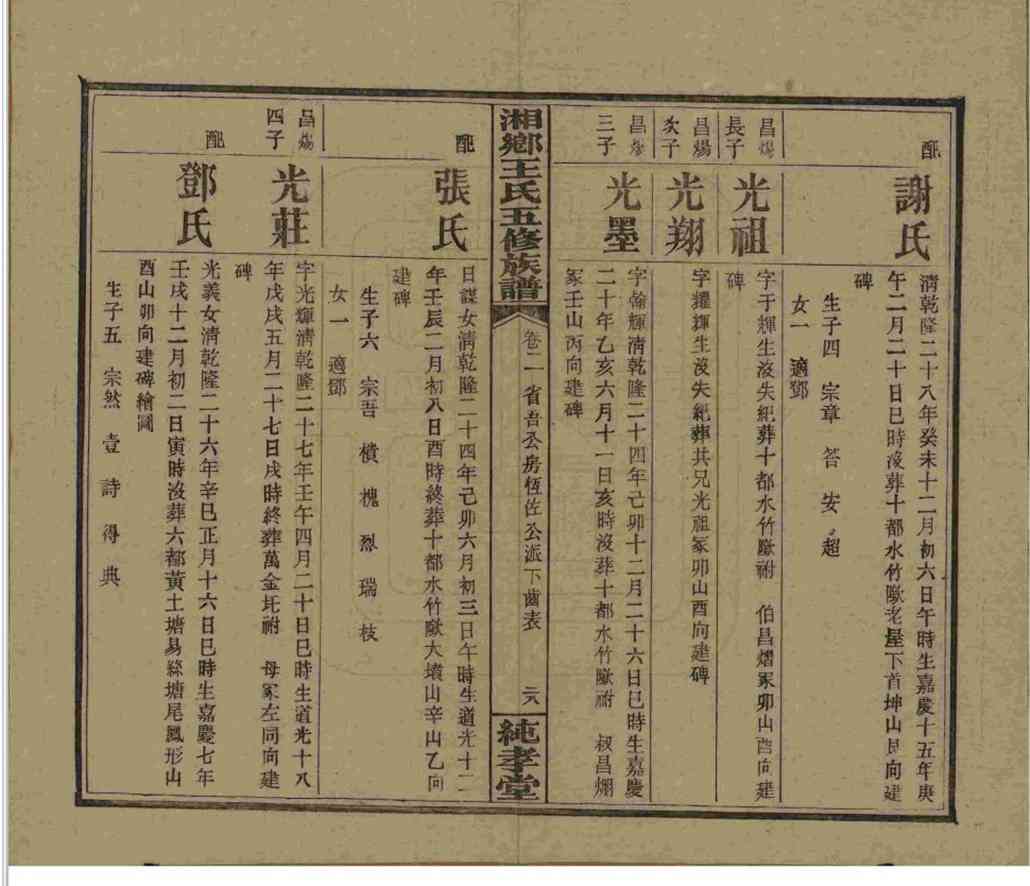 配
謝氏
清乾隆二十八年癸未十二月初六日午時生嘉慶十五年庚
午二月二十日巳時沒葬十都水竹䧢老屋下首坤山艮向建
碑
生子四 宗章 答 安 超
女一 適鄧
昌煬
長子
光祖
字于輝生沒失紀葬十都水竹䧢祔 伯昌熠冢卯山酉向建
碑
昌煬
次子
光翔
字耀輝生沒失紀葬共兄光祖冢卯山酉向建碑
昌煬
三子
光墨
字翰輝清乾隆二十四年己卯十二月二十六日巳時生嘉慶
二十年乙亥六月十一日亥時沒葬十都水竹䧢祔 叔昌
冢壬山丙向建碑
湘鄉王氏五修族譜
卷二 省吾公房恆佐公派下齒表
二八
純孝堂
配
張氏
日謀女清乾隆二十四年己卯六月初三日午時生道光十二
年壬辰二月初八日酉時終葬十都水竹䧢大壙山辛山乙向
建碑
生子六 宗吾 槐 烈 瑞 枝
女一 適鄧
昌煬
四子
光莊
字光輝清乾隆二十七年壬午四月二十日巳時生道光十八
年戊戌五月二十七日戌時終葬萬金圫祔 母冢左同向建
碑
配
鄧氏
光義女清乾隆二十六年辛巳正月十六日巳時生嘉慶七年
壬戌十二月初二日寅時沒葬六都黃土塘易絲塘尾鳳形山
酉山卯向建碑繪圖
生子五 宗然 壹 詩 得 典